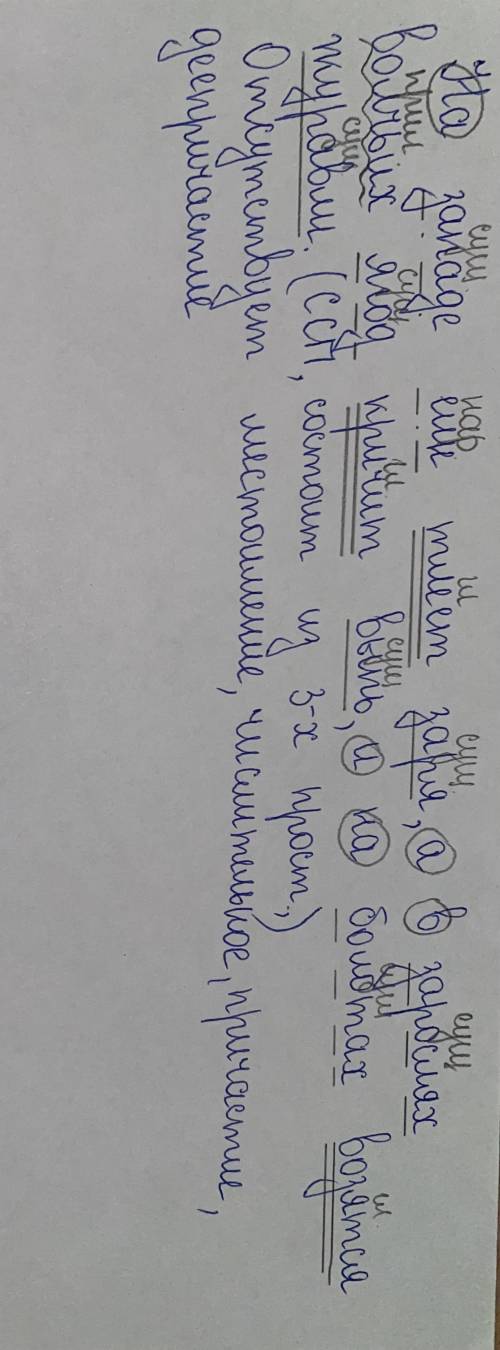 сущ нар гл сущ сущ
На западе еще тлеет заря, а в зарослях
прил сущ гл сущ сущ гл
волчьих ягод кричит выпь, а на болотах возятся
сущ
журавли. (ССП, состоит из 3-х прост.)
Отсутствует местоимение, числительное, причастие,
деепричастие